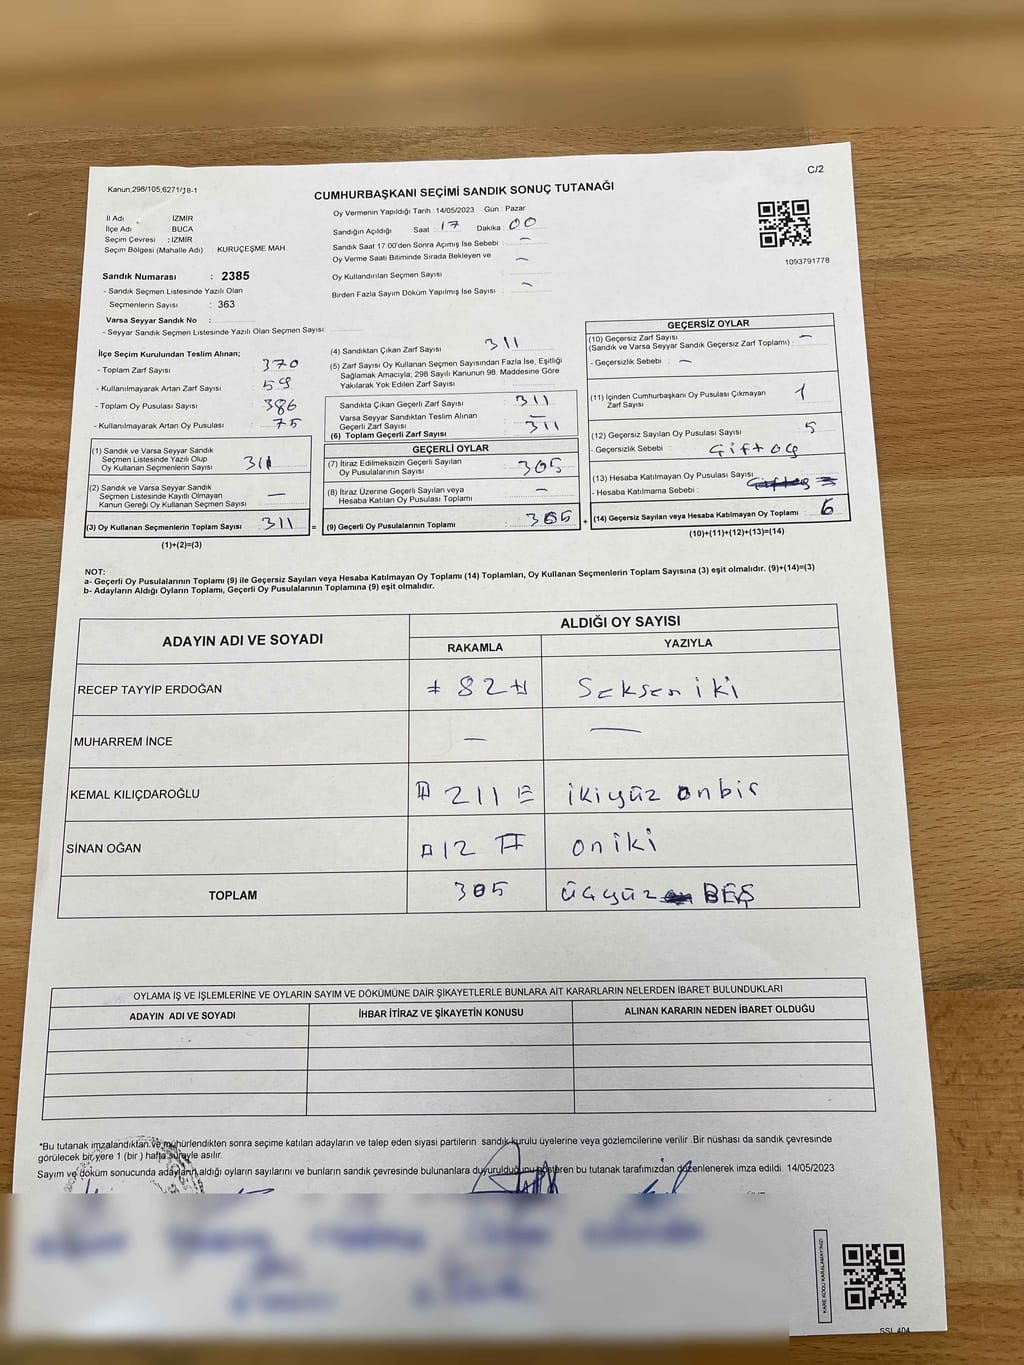 C/2
Kanun,298/105,6271/18-1
CUMHURBAŞKANI SEÇİMİ SANDIK SONUÇ TUTANAĞI
İl Adı : İZMİR
İlçe Adı : BUCA
Seçim Çevresi : İZMİR
Seçim Bölgesi (Mahalle Adı) KURUÇEŞME MAH.
Oy Vermenin Yapıldığı Tarih : 14/05/2023 Gün : Pazar
Sandığın Açıldığı Saat 17 Dakika 00
Sandık Saat 17:00'den Sonra Açımış İse Sebebi : —
Oy Verme Saati Bitiminde Sırada Bekleyen ve —
Oy Kullandırılan Seçmen Sayısı
Birden Fazla Sayım Döküm Yapılmış İse Sayısı : —
1093791778
Sandık Numarası : 2385
- Sandık Seçmen Listesinde Yazılı Olan
Seçmenlerin Sayısı : 363
Varsa Seyyar Sandık No :
- Seyyar Sandık Seçmen Listesinde Yazılı Olan Seçmen Sayısı:
İlçe Seçim Kurulundan Teslim Alınan;
- Toplam Zarf Sayısı : 370
- Kullanılmayarak Artan Zarf Sayısı : 59
- Toplam Oy Pusulası Sayısı : 386
- Kullanılmayarak Artan Oy Pusulası : 75
(1) Sandık ve Varsa Seyyar Sandık
Seçmen Listesinde Yazılı Olup
Oy Kullanan Seçmenlerin Sayısı 311
(2) Sandık ve Varsa Seyyar Sandık
Seçmen Listesinde Kayıtlı Olmayan
Kanun Gereği Oy Kullanan Seçmen Sayısı —
(3) Oy Kullanan Seçmenlerin Toplam Sayısı : 311 =
(1)+(2)=(3)
(4) Sandıktan Çıkan Zarf Sayısı : 311
(5) Zarf Sayısı Oy Kullanan Seçmen Sayısından Fazla İse, Eşitliği
Sağlamak Amacıyla; 298 Sayılı Kanunun 98. Maddesine Göre
Yakılarak Yok Edilen Zarf Sayısı
Sandıkta Çıkan Geçerli Zarf Sayısı : 311
Varsa Seyyar Sandıktan Teslim Alınan
Geçerli Zarf Sayısı : —
(6) Toplam Geçerli Zarf Sayısı : 311
GEÇERLİ OYLAR
(7) İtiraz Edilmeksizin Geçerli Sayılan
Oy Pusulalarının Sayısı : 305
(8) İtiraz Üzerine Geçerli Sayılan veya
Hesaba Katılan Oy Pusulası Toplamı : —
(9) Geçerli Oy Pusulalarının Toplamı : 305 +
GEÇERSİZ OYLAR
(10) Geçersiz Zarf Sayısı
(Sandık ve Varsa Seyyar Sandık Geçersiz Zarf Toplamı) : —
- Geçersizlik Sebebi : —
(11) İçinden Cumhurbaşkanı Oy Pusulası Çıkmayan
Zarf Sayısı : 1
(12) Geçersiz Sayılan Oy Pusulası Sayısı : 5
- Geçersizlik Sebebi : Çift oy
(13) Hesaba Katılmayan Oy Pusulası Sayısı
- Hesaba Katılmama Sebebi :
(14) Geçersiz Sayılan veya Hesaba Katılmayan Oy Toplamı : 6
(10)+(11)+(12)+(13)=(14)
NOT:
a- Geçerli Oy Pusulalarının Toplamı (9) ile Geçersiz Sayılan veya Hesaba Katılmayan Oy Toplamı (14) Toplamları, Oy Kullanan Seçmenlerin Toplam Sayısına (3) eşit olmalıdır. (9)+(14)=(3)
b- Adayların Aldığı Oyların Toplamı, Geçerli Oy Pusulalarının Toplamına (9) eşit olmalıdır.
ADAYIN ADI VE SOYADI ALDIĞI OY SAYISI
RAKAMLA YAZIYLA
RECEP TAYYİP ERDOĞAN 82 Seksen iki
MUHARREM İNCE — —
KEMAL KILIÇDAROĞLU 211 ikiyüz onbir
SİNAN OĞAN 12 oniki
TOPLAM 305 üçyüz BEŞ
OYLAMA İŞ VE İŞLEMLERİNE VE OYLARIN SAYIM VE DÖKÜMÜNE DAİR ŞİKAYETLERLE BUNLARA AİT KARARLARIN NELERDEN İBARET BULUNDUKLARI
ADAYIN ADI VE SOYADI İHBAR İTİRAZ VE ŞİKAYETİN KONUSU ALINAN KARARIN NEDEN İBARET OLDUĞU
*Bu tutanak imzalandıktan ve mühürlendikten sonra seçime katılan adayların ve talep eden siyasi partilerin sandık kurulu üyelerine veya gözlemcilerine verilir .Bir nüshası da sandık çevresinde
görülecek bir yere 1 (bir ) hafta süreyle asılır.
Sayım ve döküm sonucunda adayların aldığı oyların sayılarını ve bunların sandık çevresinde bulunanlara duyurulduğunu gösteren bu tutanak tarafımızdan düzenlenerek imza edildi. 14/05/2023
KARE KODU KARALAMAYINIZ!
SSI_404